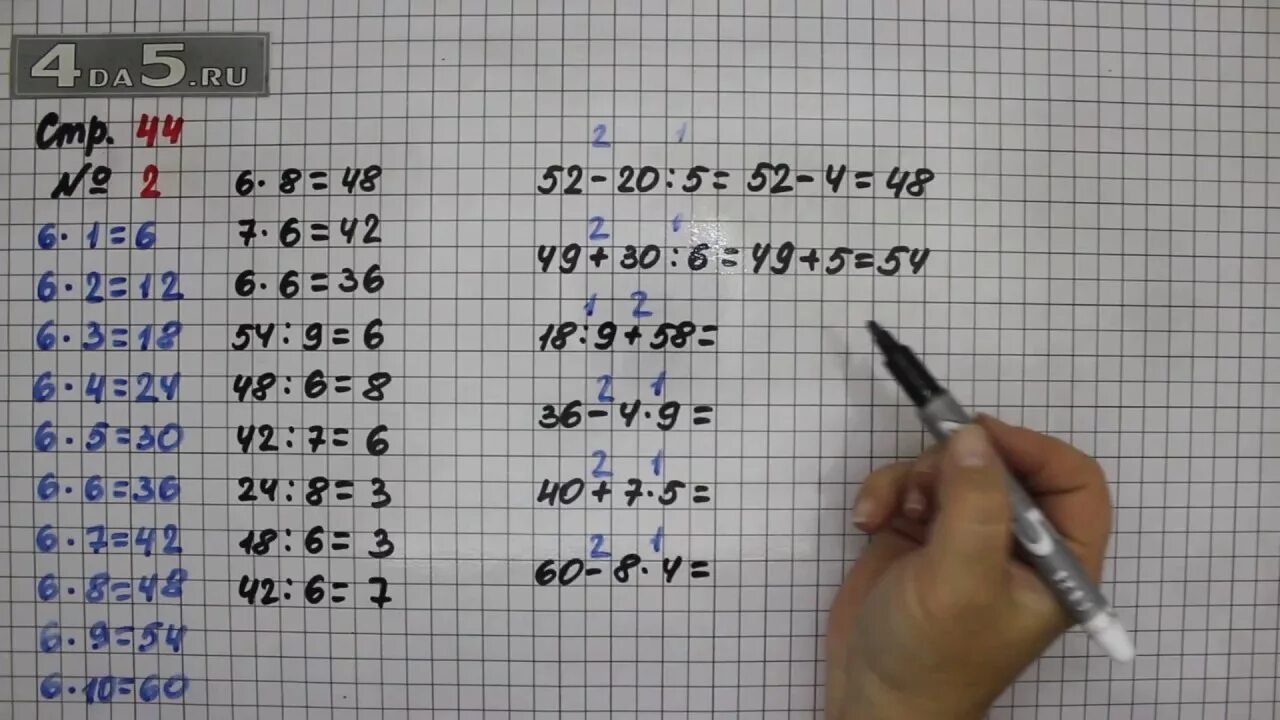 4DA5.RU
Стр. 44
№ 2
6·1=6
6·2=12
6·3=18
6·4=24
6·5=30
6·6=36
6·7=42
6·8=48
6·9=54
6·10=60
6·8=48
7·6=42
6·6=36
54:9=6
48:6=8
42:7=6
24:8=3
18:6=3
42:6=7
2 1
52-20:5=52-4=48
2 1
49+30:6=49+5=54
1 2
18:9+58=
2 1
36-4·9=
2 1
40+7·5=
2 1
60-8·4=